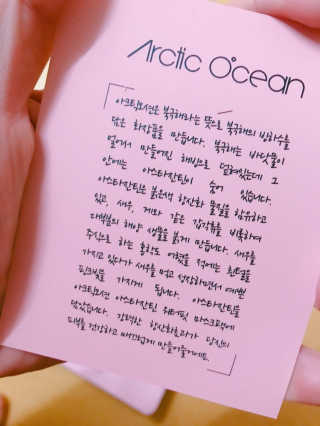 Arctic Ocean
아크틱오션은 북극해라는 뜻으로 북극해의 빙하수를
담은 화장품을 만듭니다. 북극해는 바닷물이
얼어서 만들어진 해빙으로 덮여있는데 그
안에는 아스타잔틴이 숨어 있습니다.
아스타잔틴은 붉은색 항산화 물질을 함유하고
있고, 새우, 게와 같은 갑각류를 비롯하여
대부분의 해양 생물을 붉게 만듭니다. 새우를
주식으로 하는 홍학도 어렸을 적에는 흰털을
가지고 있다가 새우를 먹고 성장하면서 예쁜
핑크빛을 가지게 됩니다. 아스타잔틴을
아크틱오션 아스타잔틴 워터링 마스크팩에
담았습니다. 강력한 항산화효과가 당신의
피부를 건강하고 매끄럽게 만들어줄거에요.